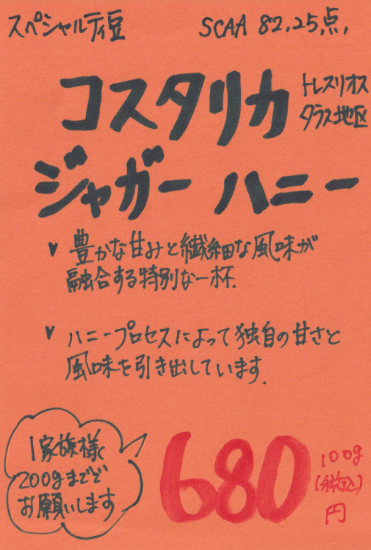 スペシャルティ豆
SCAA 82.25点.
コスタリカ
トレスリオス
タラス地区
ジャガー ハニー
✓ 豊かな甘みと繊細な風味が
融合する特別な一杯.
✓ ハニープロセスによって独自の甘さと
風味を引き出しています.
1家族様
200gまでで
お願いします
680
100g
(税込)
円